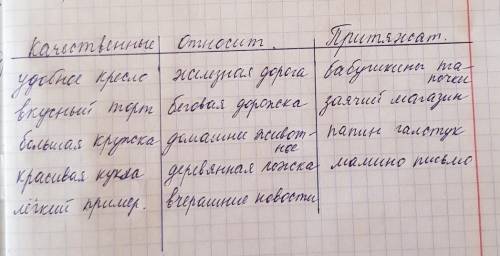 Качественные Относит. Притяжат.
удобное кресло железная дорога бабушкины та-
почки
вкусный торт беговая дорожка заячий магазин
большая кружка домашнее живот-
ное папин галстук
красивая кукла деревянная ложка мамино письмо
лёгкий пример. вчерашние новости